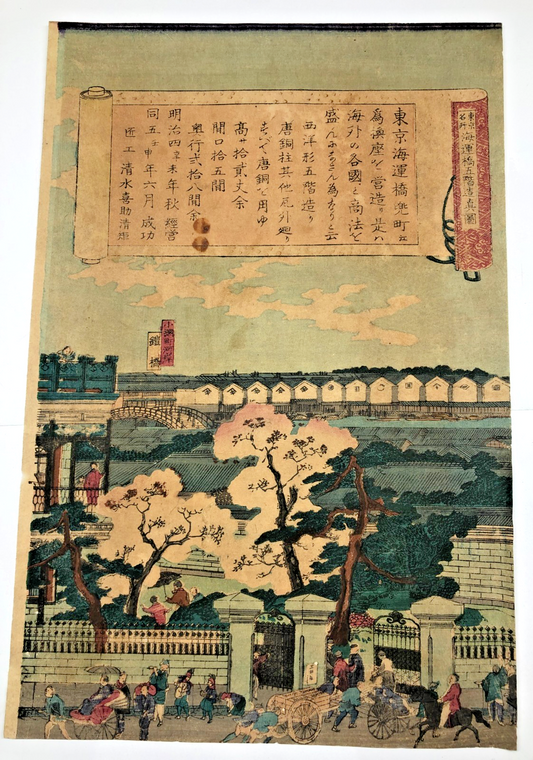 東京名所
海運橋五階造真図
東京海運橋兜町ニ
為換座ヲ営造ル是ハ
海外の各國と商法を
盛んにするん為なりと云
西洋形五階造り
唐銅柱其他瓦外廻り
すべて唐銅を用ゆ
高サ拾貳丈余
間口拾五間
奥行弐拾八間余
明治四辛未年秋経営
同五壬申年六月成功
匠工清水喜助清造
小網町河岸
鎧橋